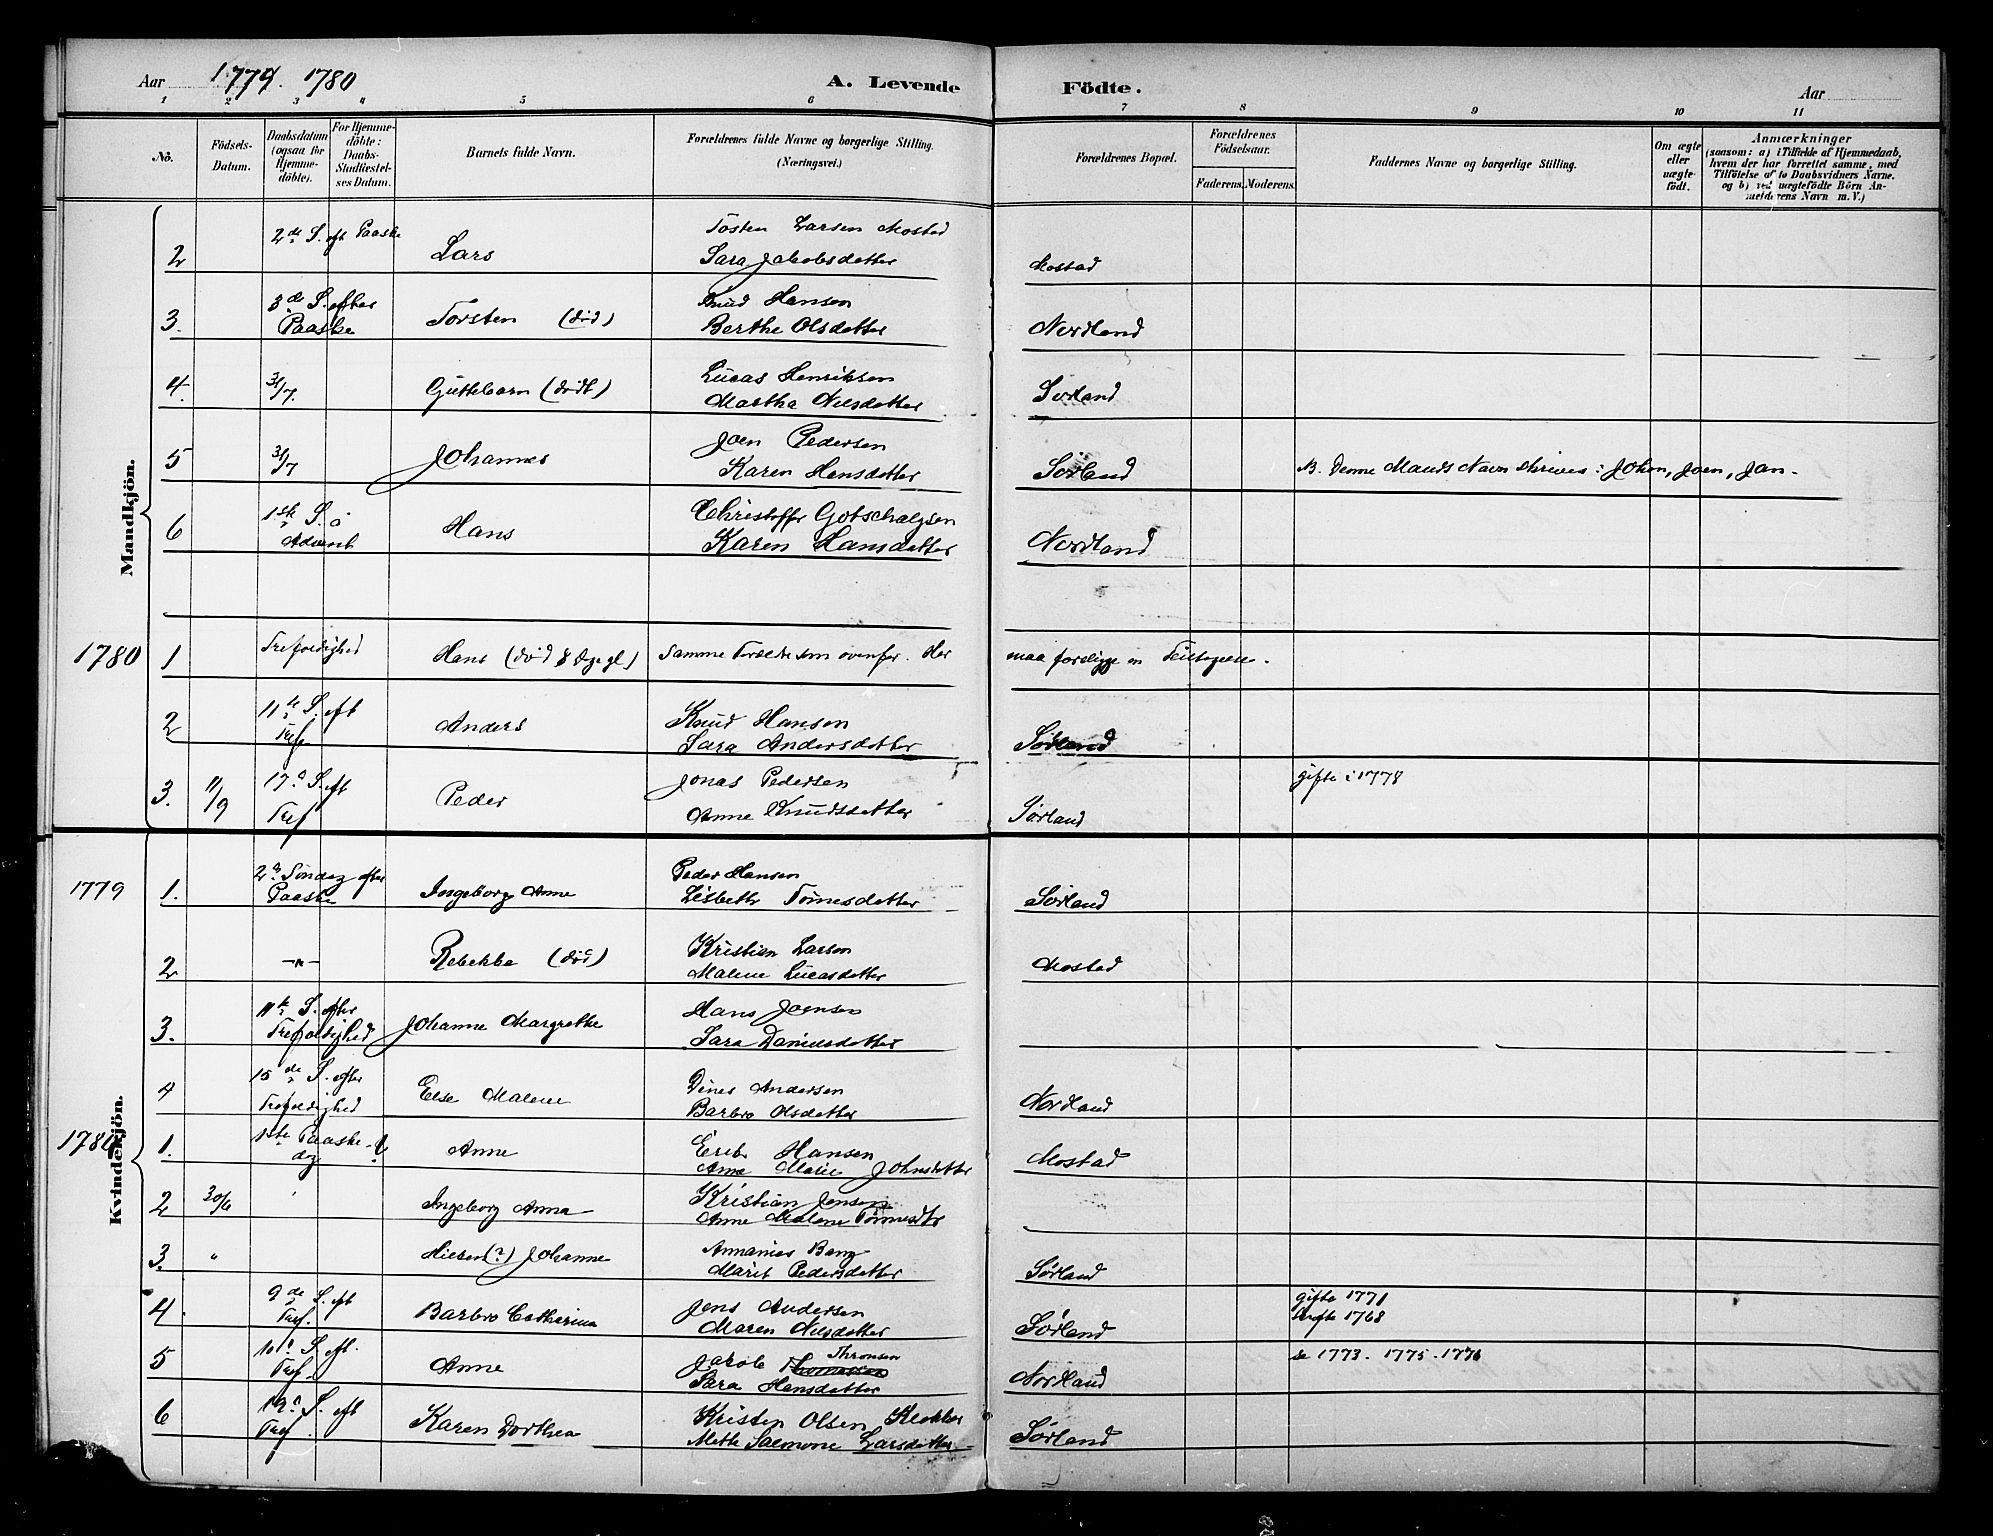 Aar 1779. 1780 A. Levende Födte. Aar
1 2 3 4 5 6 7 8 9 10 11
Nö. Födsels-Datum. Daabsdatum (ogsaa for Hjemme-döbte). For Hjemme-döbte: Daabs-Stadfæstel-ses Datum. Barnets fulde Navn. Forældrenes fulde Navne og borgerlige Stilling. (Næringsvei.) Forældrenes Bopæl. Forældrenes Födselsaar. Faderens. Moderens. Faddernes Navne og borgerlige Stilling. Om ægte eller uægte födt. Anmærkninger (saasom: a) i Tilfælde af Hjemmedaab, hvem der har forrettet samme, med Tilföielse af to Daabsvidners Navne. og b) ved uægtefödte Börn An-melderens Navn m. V.)
Mandkjön.
2 2de S. eft Paaske Lars Tosten Larsen Mostad
Sara Jakobsdatter Mostad
3. 3de S. efter Paaske Torsten (død) Knud Hansen
Berthe Olsdatter Nordland
4. 31/7. Guttebarn (dødt) Lucas Henriksen
Martha Nilsdatter Sørland
5 31/7 Johannes Joen Pedersen
Karen Hansdatter Sørland NB. Denne Mands Navn skrives: Johan, Joen, Jon.
6 1ste S. i Advent Hans Christoffer Gotschalksen
Karen Hansdatter Nordland
1780 1 Trefoldighed Hans (død 8 Dage gl) Samme Forældre som ovenfor. Her maa foreligge en Feiltagelse.
2 11te S. eft Tref. Anders Knud Hansen
Sara Andersdatter Sørland
3. 11/9 17d S. eft Tref Peder Jonas Pedersen
Anne Knudsdatter Sørland gifte i 1778
Kvindekjön.
1779 1. 2d Søndag efter Paaske Ingeborg Anne Peder Hansen
Lisbeth Tønnesdatter Sørland
2 -"- Rebekka (død) Kristian Larsen
Malene Lucasdatter Mostad
3. 11te S. efter Trefoldighed Johanne Margrethe Hans Joensen
Sara Danielsdatter
4 15de S. efter Trefoldighed Else Malene Dines Andersen
Barbro Olsdatter Nordland
1780 1. 1ste Paaske-dag Anne Erik Hansen
Anne Marie Johnsdatter Mostad
2 30/6 Ingeborg Anna Kristian Jensen
Anne Malene Tønnesdtr
3. " (?) Johanne Annanias Bang
Marit Pedersdatter Sørland
4 9de S. eft Tref. Barbro Catharina Jens Andersen
Maren Nilsdatter Sørland gifte 1771
1768
5 10d S. eft. Tref. Anne Jacob Thomassen Thronsen
Sara Hansdatter Nordland se 1773. 1775. 1776
6 19d S. eft Tref. Karen Dorthea Kristen Olsen Klokker
Mette Salmone Larsdatter Sørland